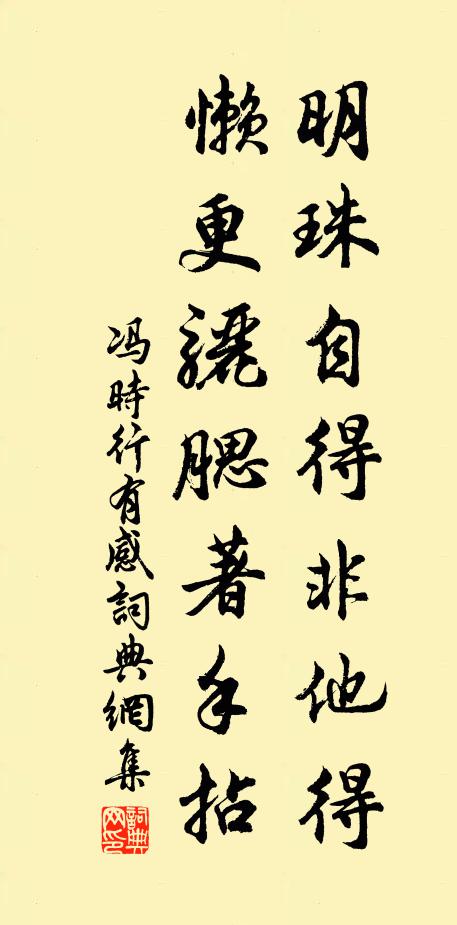 明珠自得非他得
懶更驪腮著手拈
冯時行有感詞典網集
詞典网印